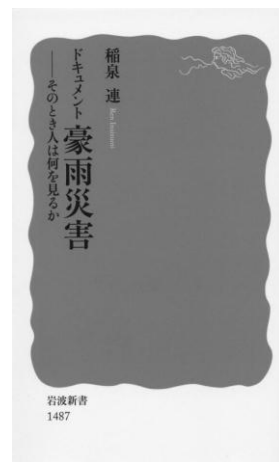 稲泉 連 Ren Inaizumi
ドキュメント 豪雨災害
──そのとき人は何を見るか
岩波新書
1487